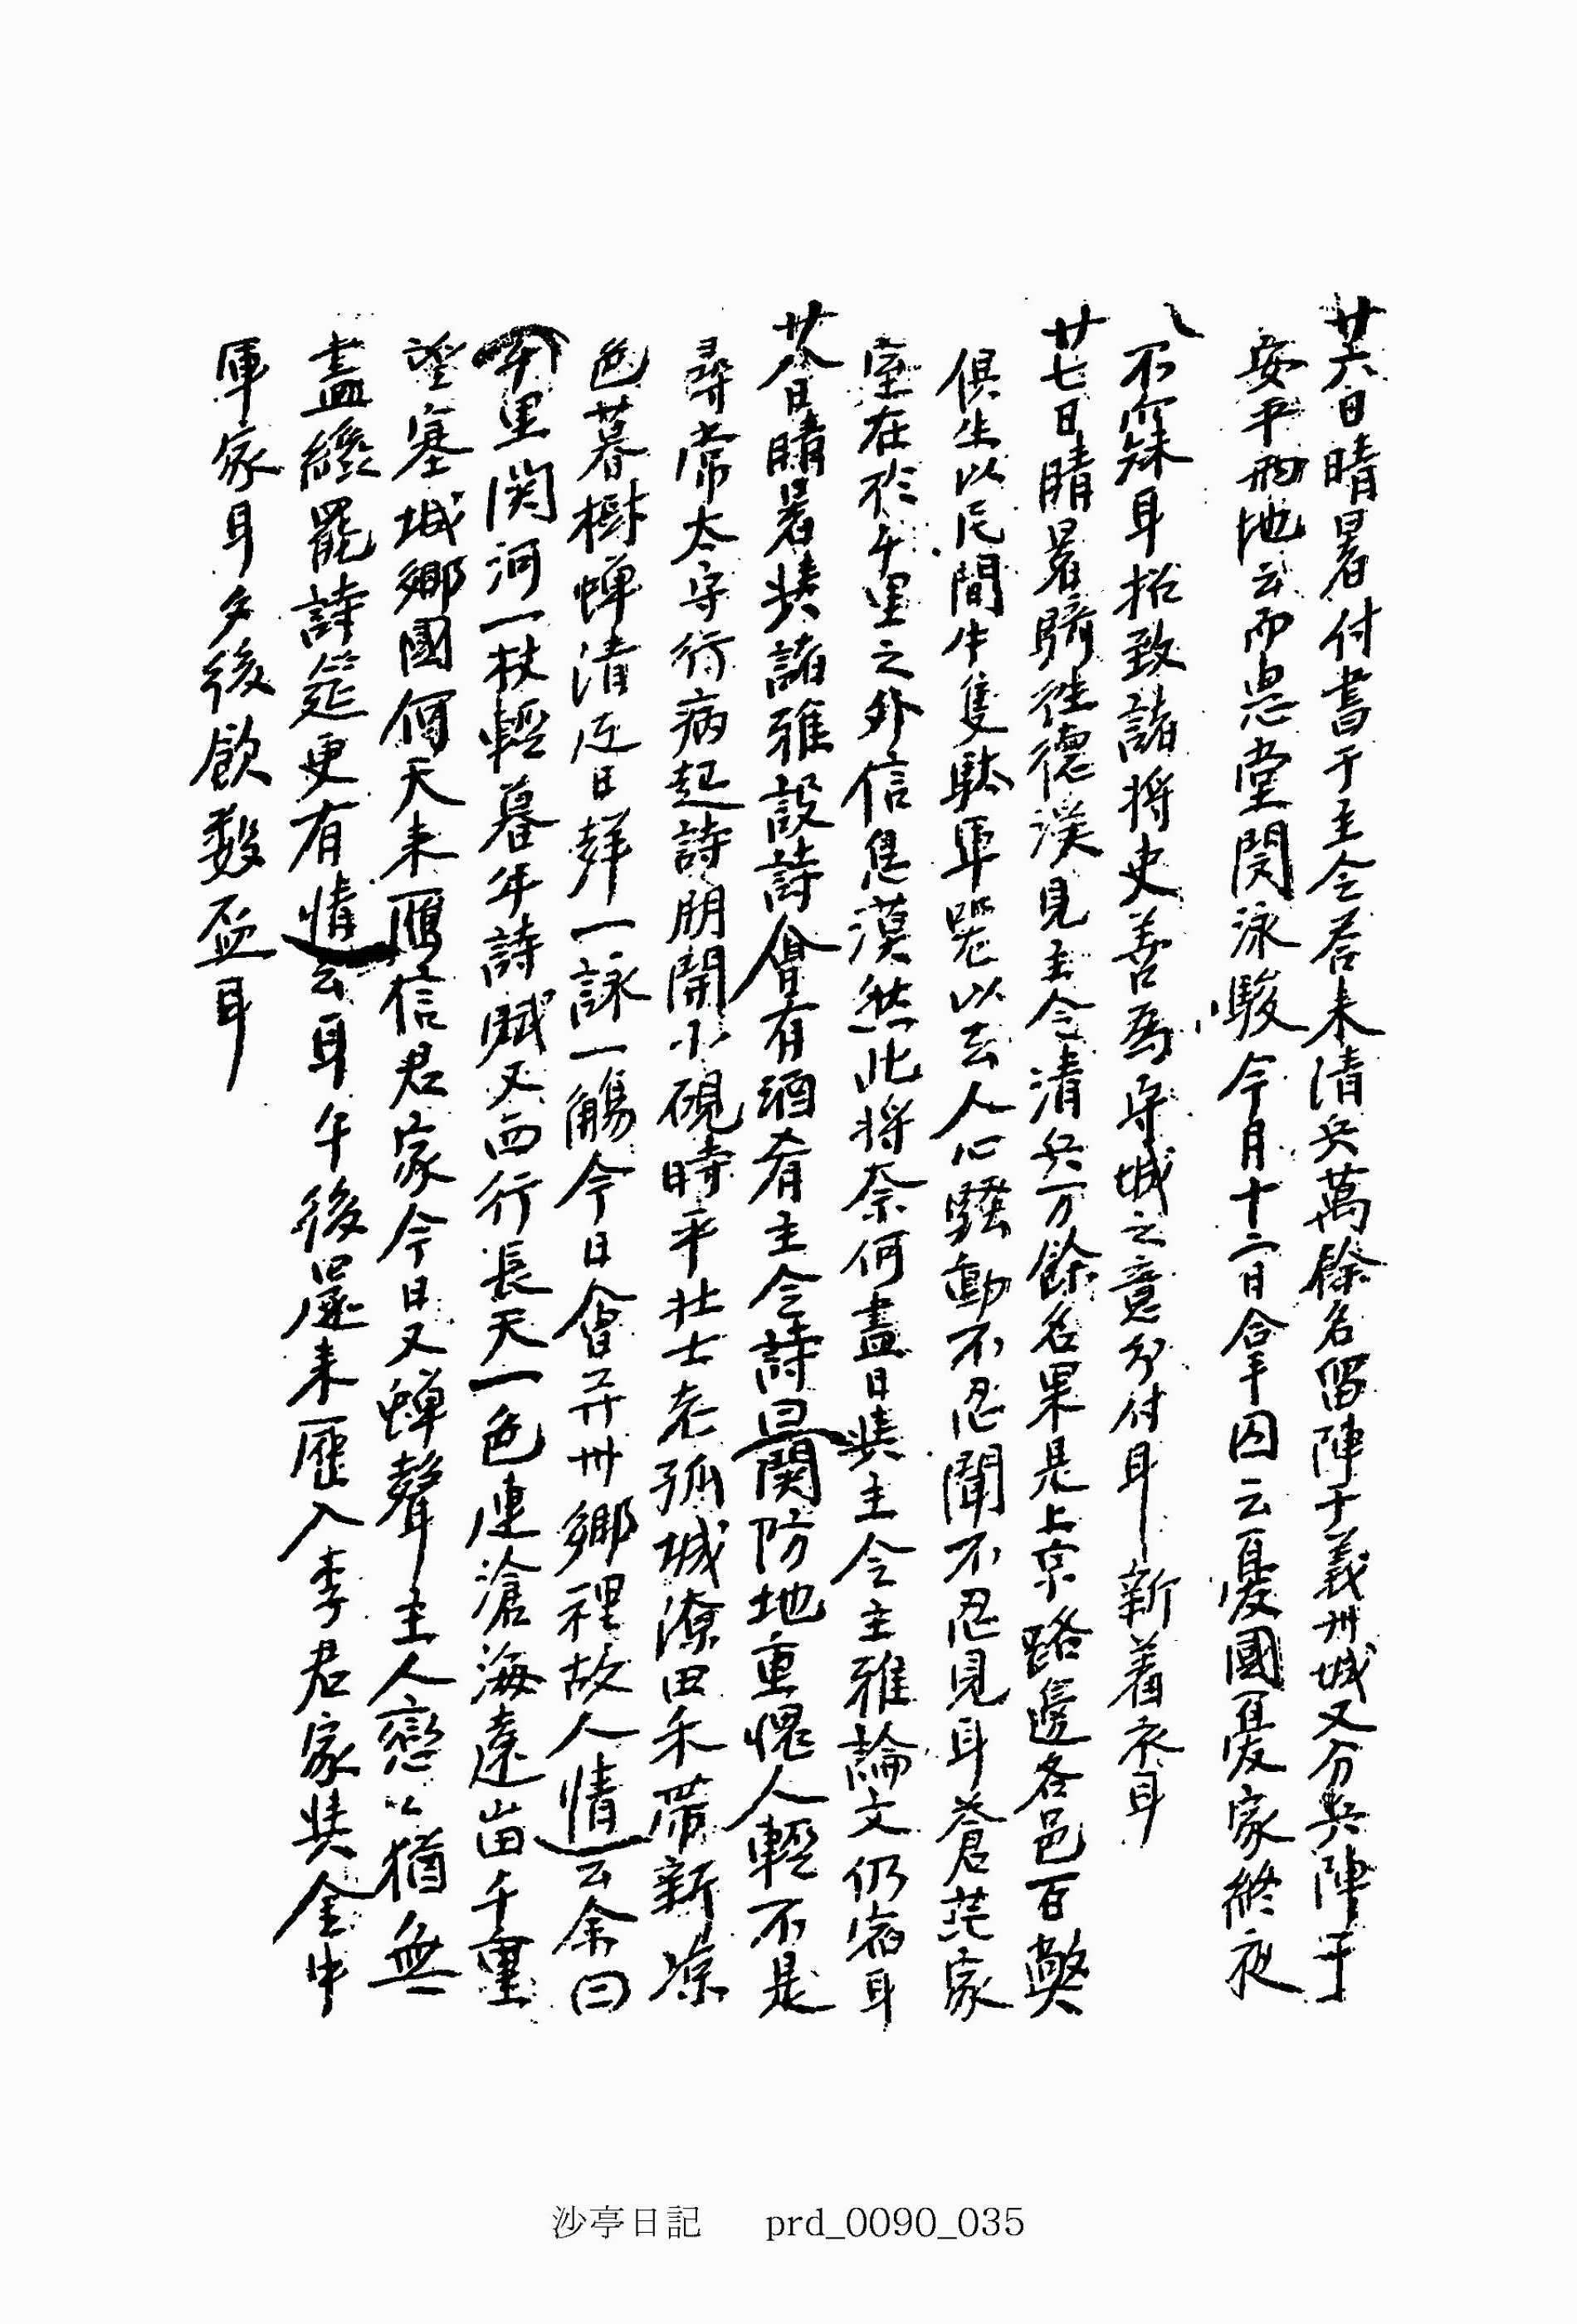 廿六日晴暑付書于主令答未清兵萬餘名留陣于義州城又分兵陣于
安平形地云而患堂閔泳駿今月十二日拿囚云憂國憂家終夜
不寐耳招致諸將吏善爲守城之意分付耳新着衣耳
廿七日晴暑騎徃德漢見主令清兵万餘名果是上京路邊各邑百獘
俱生以民間牛隻駄軍器以去人心騷動不忍聞不忍見耳蒼茫家
室在於千里之外信息漠然此將奈何盡日與主令主雅論文仍宿耳
廿八日晴暑與諸雅設詩會有酒肴主令詩曰関防地重愧人輕不是
尋常太守行病起詩朋開小硯時平壯士老孤城潦田禾帶新凉
色暮樹蟬清近日聲一詠一觴今日會弄州鄉裡故人情云余曰
千里関河一杖輕暮年詩賦又西行長天一色連滄海遠峀千重
望塞城鄉國何天來鴈信君家今日又蟬聲主人戀〻猶無
盡纔罷詩筵更有情云耳午後還來歷入李君家與金中
軍家耳夕後飮数盃耳
沙亭日記 prd_0090_035